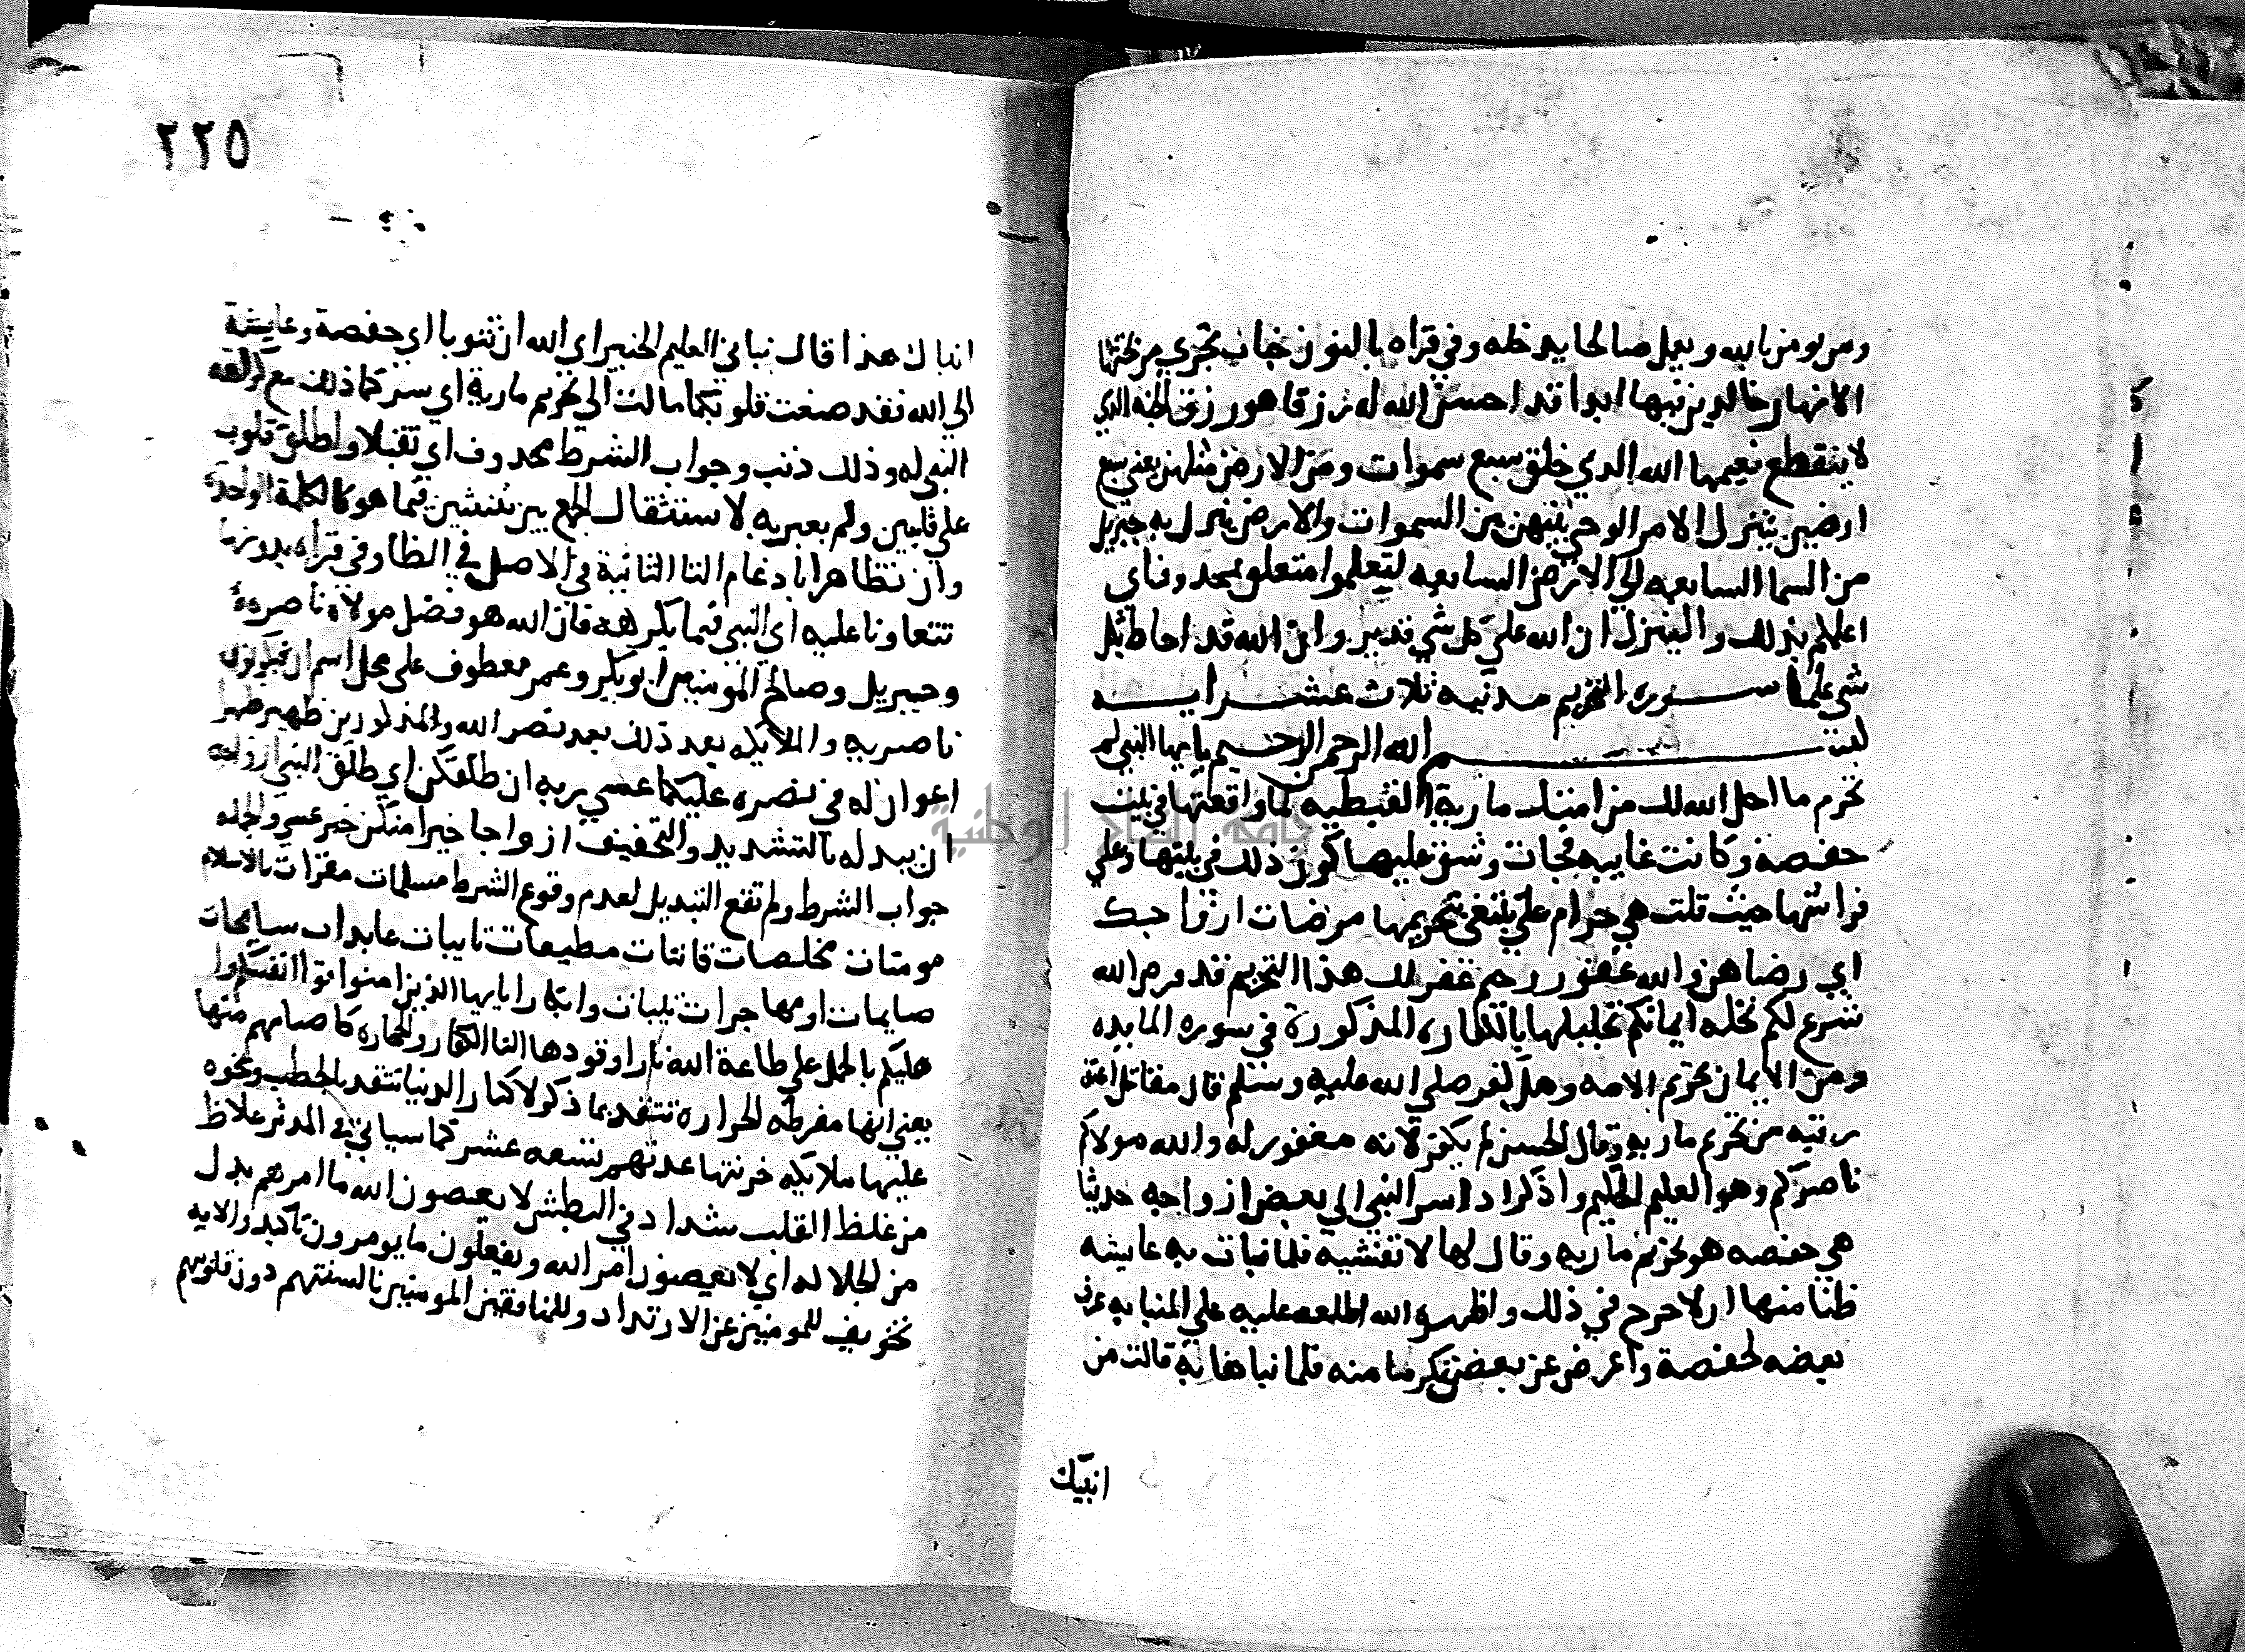 ومن يومن بالله ويعمل صالحا يدخله وفي قراه بالنون جنات تجري من تحتها
الانهار خالدين فيها ابدا قد احسن الله له رزقا هو رزق الجنه الذي
لا ينقطع نعيمها الله الذي خلق سبع سموات ومن الارض مثلهن يعني سبع
ارضين يتنزل الامر الوحي بينهن بين السموات والارض ينزل به جبريل
من السما السابعه الي الارض السابعه لتعلموا متعلق بمحدوف اي
اعلمكم بذلك والتنزل ان الله علي كل شي قدير وان الله قد احاط بكل
شي علما سوره التحريم مدنيه ثلاث عشر ايه
بسم الله الرحمن الرحيم يا ايها النبي لم
تحرم ما احل الله لك من امتك مارية القبطيه لما واقعتها في بيت
حفصة وكانت غايبه فجات وشق عليها كون ذلك في بيتها وعلي
فراشها حيث قلت هي حرام علي تبتغي بتحريمها مرضات ازواجك
اي رضاهن والله غفور رحيم غفر لك هذا التحريم قد فرض الله
شرع لكم تحله ايمانكم تحليلها بالكفاره المذكورة في سوره المايده
ومن الايمان تحريم الامه وهل كفر صلي الله عليه وسلم قال مقاتل اعتق
رقبه من تحريم ماريه وقال الحسن لم يكفر لانه مغفور له والله مولاكم
ناصركم وهو العليم الحكيم واذكر اد اسر النبي الي بعض ازواجه حديثا
هي حفصه هو تحريم ماريه وقال لها لا تفشيه فلما نبات به عايشه
ظنا منها ان لا حرج في ذلك واظهره الله اطلعه عليه علي المنبا به عرف
بعضه لحفصة واعرض عن بعض تكرما منه فلما نباها به قالت من
انبيك
٢٢٥
انباك هذا قال نباني العليم الخبير اي الله ان تتوبا اي حفصة وعايشة
الي الله فقد صغت قلوبكما مالت الي تحريم مارية اي سركما ذلك مع كراهة
النبي له وذلك ذنب وجواب الشرط محدوف اي تقبلا واطلق قلوب
علي قلبين ولم يعبر به لاستثقال الجمع بين تثنتين فيما هو كالكلمة الواحدة
وان تظاهرا بادغام التا الثانية في الاصل في الظا وفي قراه بدونها
تتعاونا عليه اي النبي فيما يكرهه فان الله هو فضل مولاه ناصره
وجبريل وصالح المومنين ابو بكر وعمر معطوف علي محل اسم ان فيكونون
ناصريه والملايكه بعد ذلك بعد نصر الله والمذكورين ظهير ظهرا
اعوان له في نصره عليكما عسي ربه ان طلقكن اي طلق النبي ازواجه
ان يبدله بالتشديد والتخفيف ازواجا خيرا منكن خبر عسي والجمله
جواب الشرط ولم تقع التبديل لعدم وقوع الشرط مسلمات مقرات بالاسلام
مومنات مخلصات قانتات مطيعات تايبات عابدات سايحات
صايمات او مهاجرات ثيبات وابكارا يا ايها الذين امنوا قوا انفسكم
هليكم بالحمل علي طاعة الله نارا وقودها الناس الكفار والحجاره كاصنامهم منها
يعني انها مفرطه الحراره تتقد بما ذكر لا كنار الدنيا تتقد بالحطب ونحوه
عليها ملايكه خزنتها عدتهم تسعه عشر كما سياتي في المدثر غلاظ
من غلظ القلب شداد في البطش لا يعصون الله ما امرهم بدل
من الجلاله اي لا يعصون امر الله ويفعلون ما يومرون تاكيد والايه
تخويف للمومنين عن الارتداد وللمنافقين المومنين بالسنتهم دون قلوبهم
جامعة النجاح الوطنية